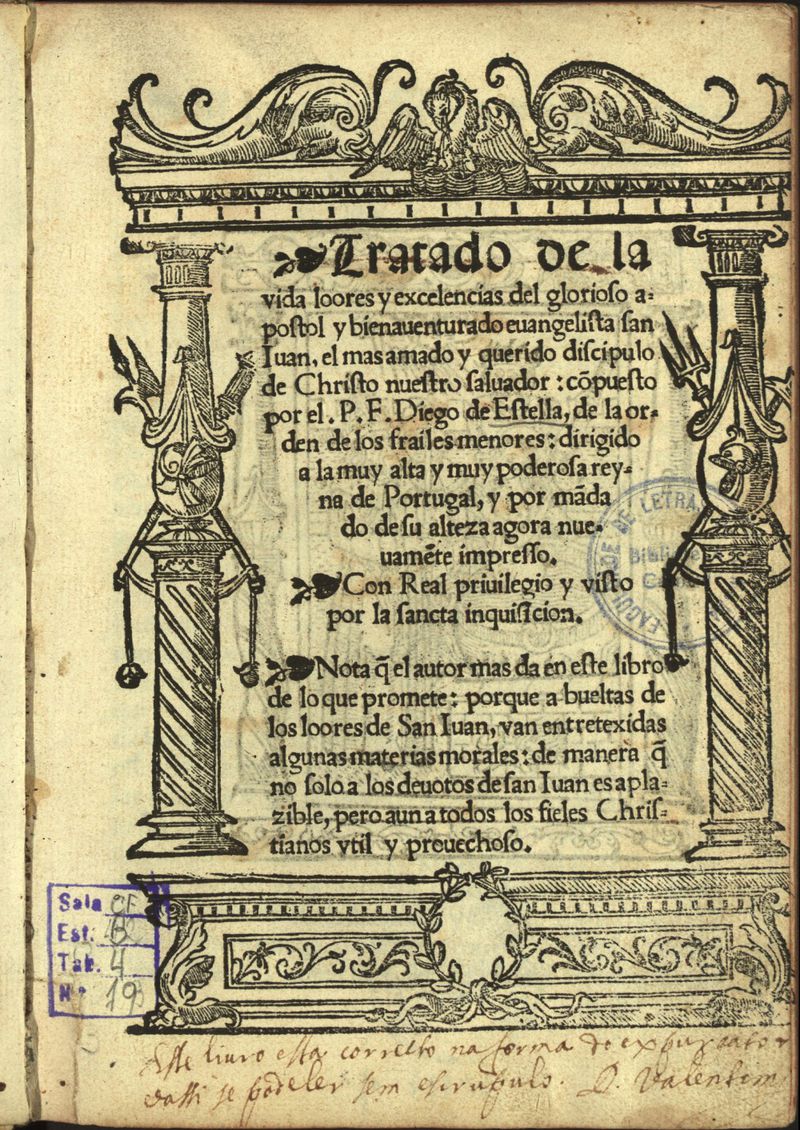 Tratado de la
vida loores y excelencias del glorioso a=
postol y bienauenturado euangelista san
Iuan, el mas amado y querido discipulo
de Christo nuestro saluador : cõpuesto
por el . P. F. Diego de Estella, de la or=
den de los frailes menores : dirigido
a la muy alta y muy poderosa rey=
na de Portugal, y por mãda
do de su alteza agora nue=
uamẽte impresso.
Con Real priuilegio y visto
por la sancta inquisicion.
Nota q̃ el autor mas da en este libro
de lo que promete : porque a bueltas de
los loores de San Iuan, van entretexidas
algunas materias morales : de manera q̃
no solo a los deuotos de san Iuan es apla=
zible, pero aun a todos los fieles Chris=
tianos vtil y prouechoso.
DE LETRA
Sala CF
Est.
Tab. 4
N.º 19
Este liuro esta correcto na forma do expurgator
se pode ler sem escrupulo. D. Valentim